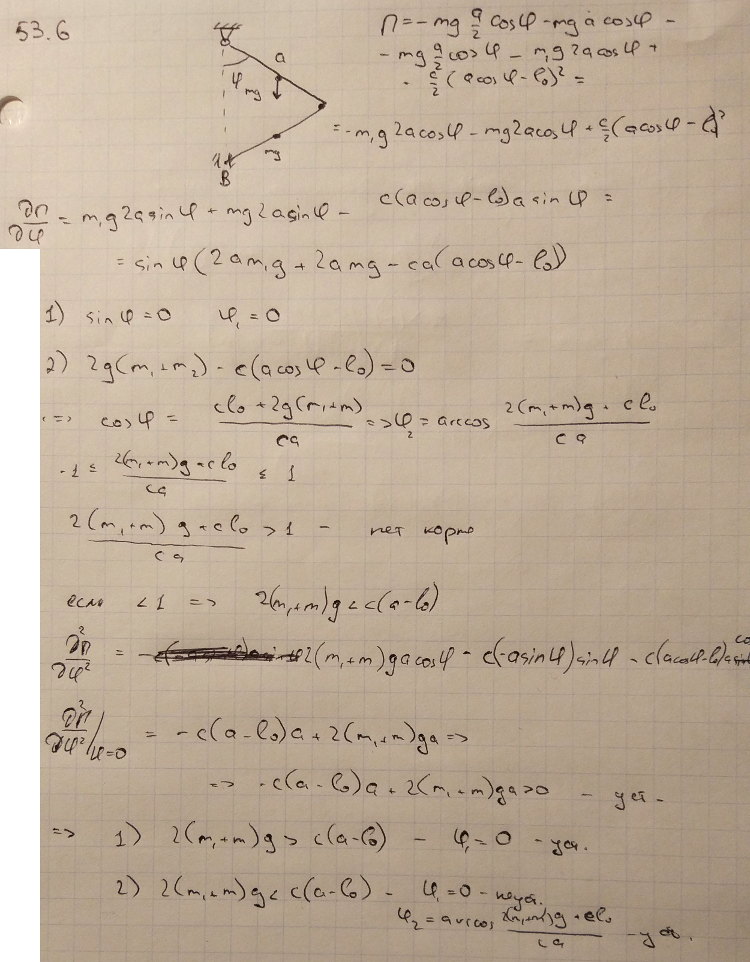 53.6
П = -mg a/2 cosφ - mg a cosφ -
- mg a/2 cosφ - m₁g 2a cosφ +
+ c/2 (a cosφ - l₀)² =
= -m₁g 2a cosφ - mg 2a cosφ + c/2 (a cosφ - l₀)²
φ
a
mg
mg
B
∂П/∂φ = m₁g 2a sinφ + mg 2a sinφ - c(a cosφ - l₀) a sinφ =
= sinφ (2am₁g + 2amg - ca(a cosφ - l₀))
1) sinφ = 0 φ₁ = 0
2) 2g(m₁+m₂) - c(a cosφ - l₀) = 0
=> cosφ = (cl₀ + 2g(m₁+m))/ca => φ₂ = arccos (2(m₁+m)g + cl₀)/ca
-1 ≤ (2(m₁+m)g + cl₀)/ca ≤ 1
(2(m₁+m)g + cl₀)/ca > 1 - нет корн
если < 1 => 2(m₁+m)g < c(a-l₀)
∂²П/∂φ² = 2(m₁+m)ga cosφ - c(-a sinφ) sinφ - c(a cosφ - l₀)a cos
∂²П/∂φ² |φ=0 = -c(a-l₀)a + 2(m₁+m)ga =>
=> -c(a-l₀)a + 2(m₁+m)ga > 0 - уст -
=> 1) 2(m₁+m)g > c(a-l₀) - φ₁ = 0 - уст.
2) 2(m₁+m)g < c(a-l₀) - φ₁ = 0 - неуст.
φ₂ = arccos (2(m₁+m)g + cl₀)/ca - уст.